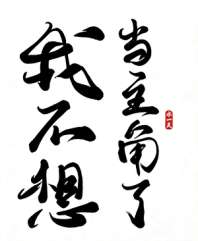 我不想
当主角了